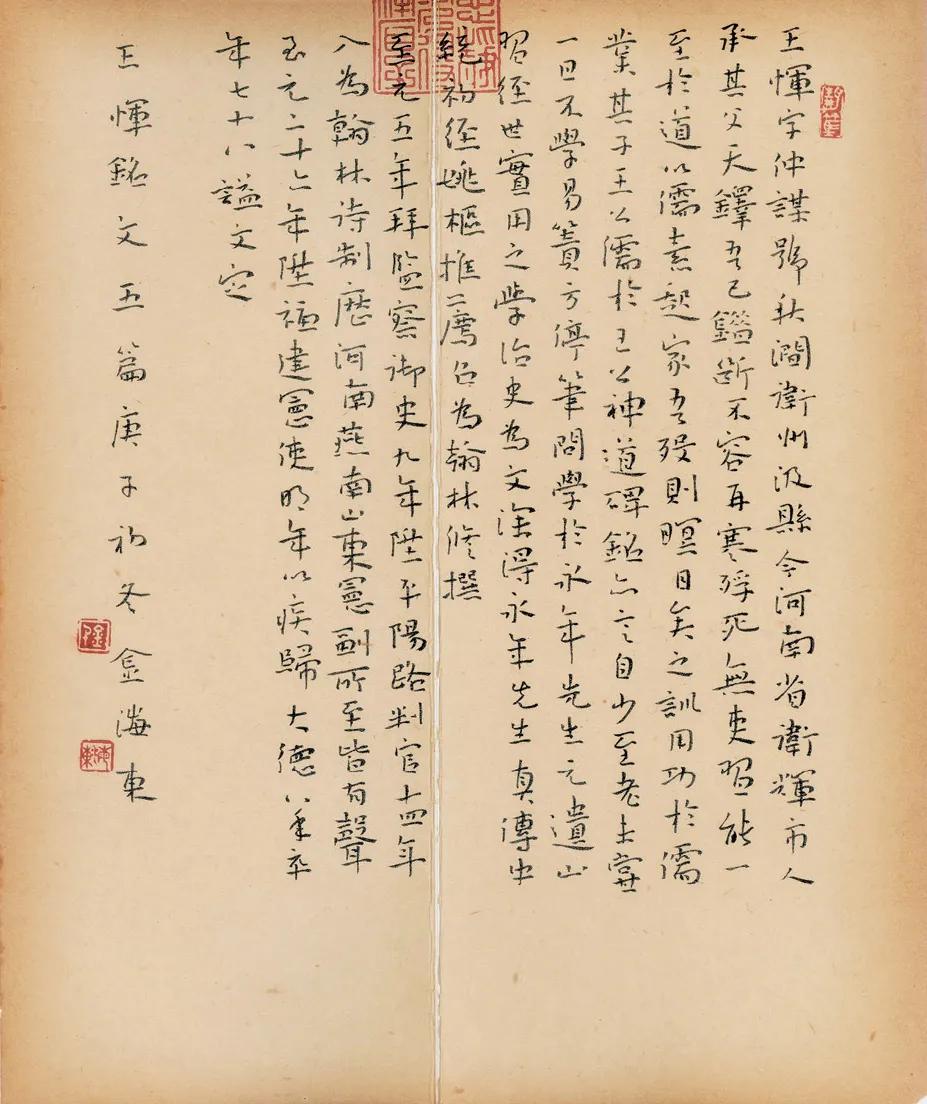 王惲字仲謀號秋澗衛州汲縣今河南省衛輝市人
承其父天鐸吾已鑑斷不容再寒殍死無吏習能一
至於道以儒素起家吾歿則瞑目矣之訓用功於儒
業其子王公儒於王公神道碑銘亦言自少至老未嘗
一日不學易簀方停筆問學於永年先生元遺山
習經世實用之學治史為文深得永年先生真傳中
統初經姚樞推薦召為翰林修撰
至元五年拜監察御史九年陞平陽路判官十四年
入為翰林待制歷河南燕南山東憲副所至皆有聲
至元二十六年陞福建憲使明年以疾歸大德八年卒
年七十八謚文定
王惲銘文五篇庚子初冬金海東